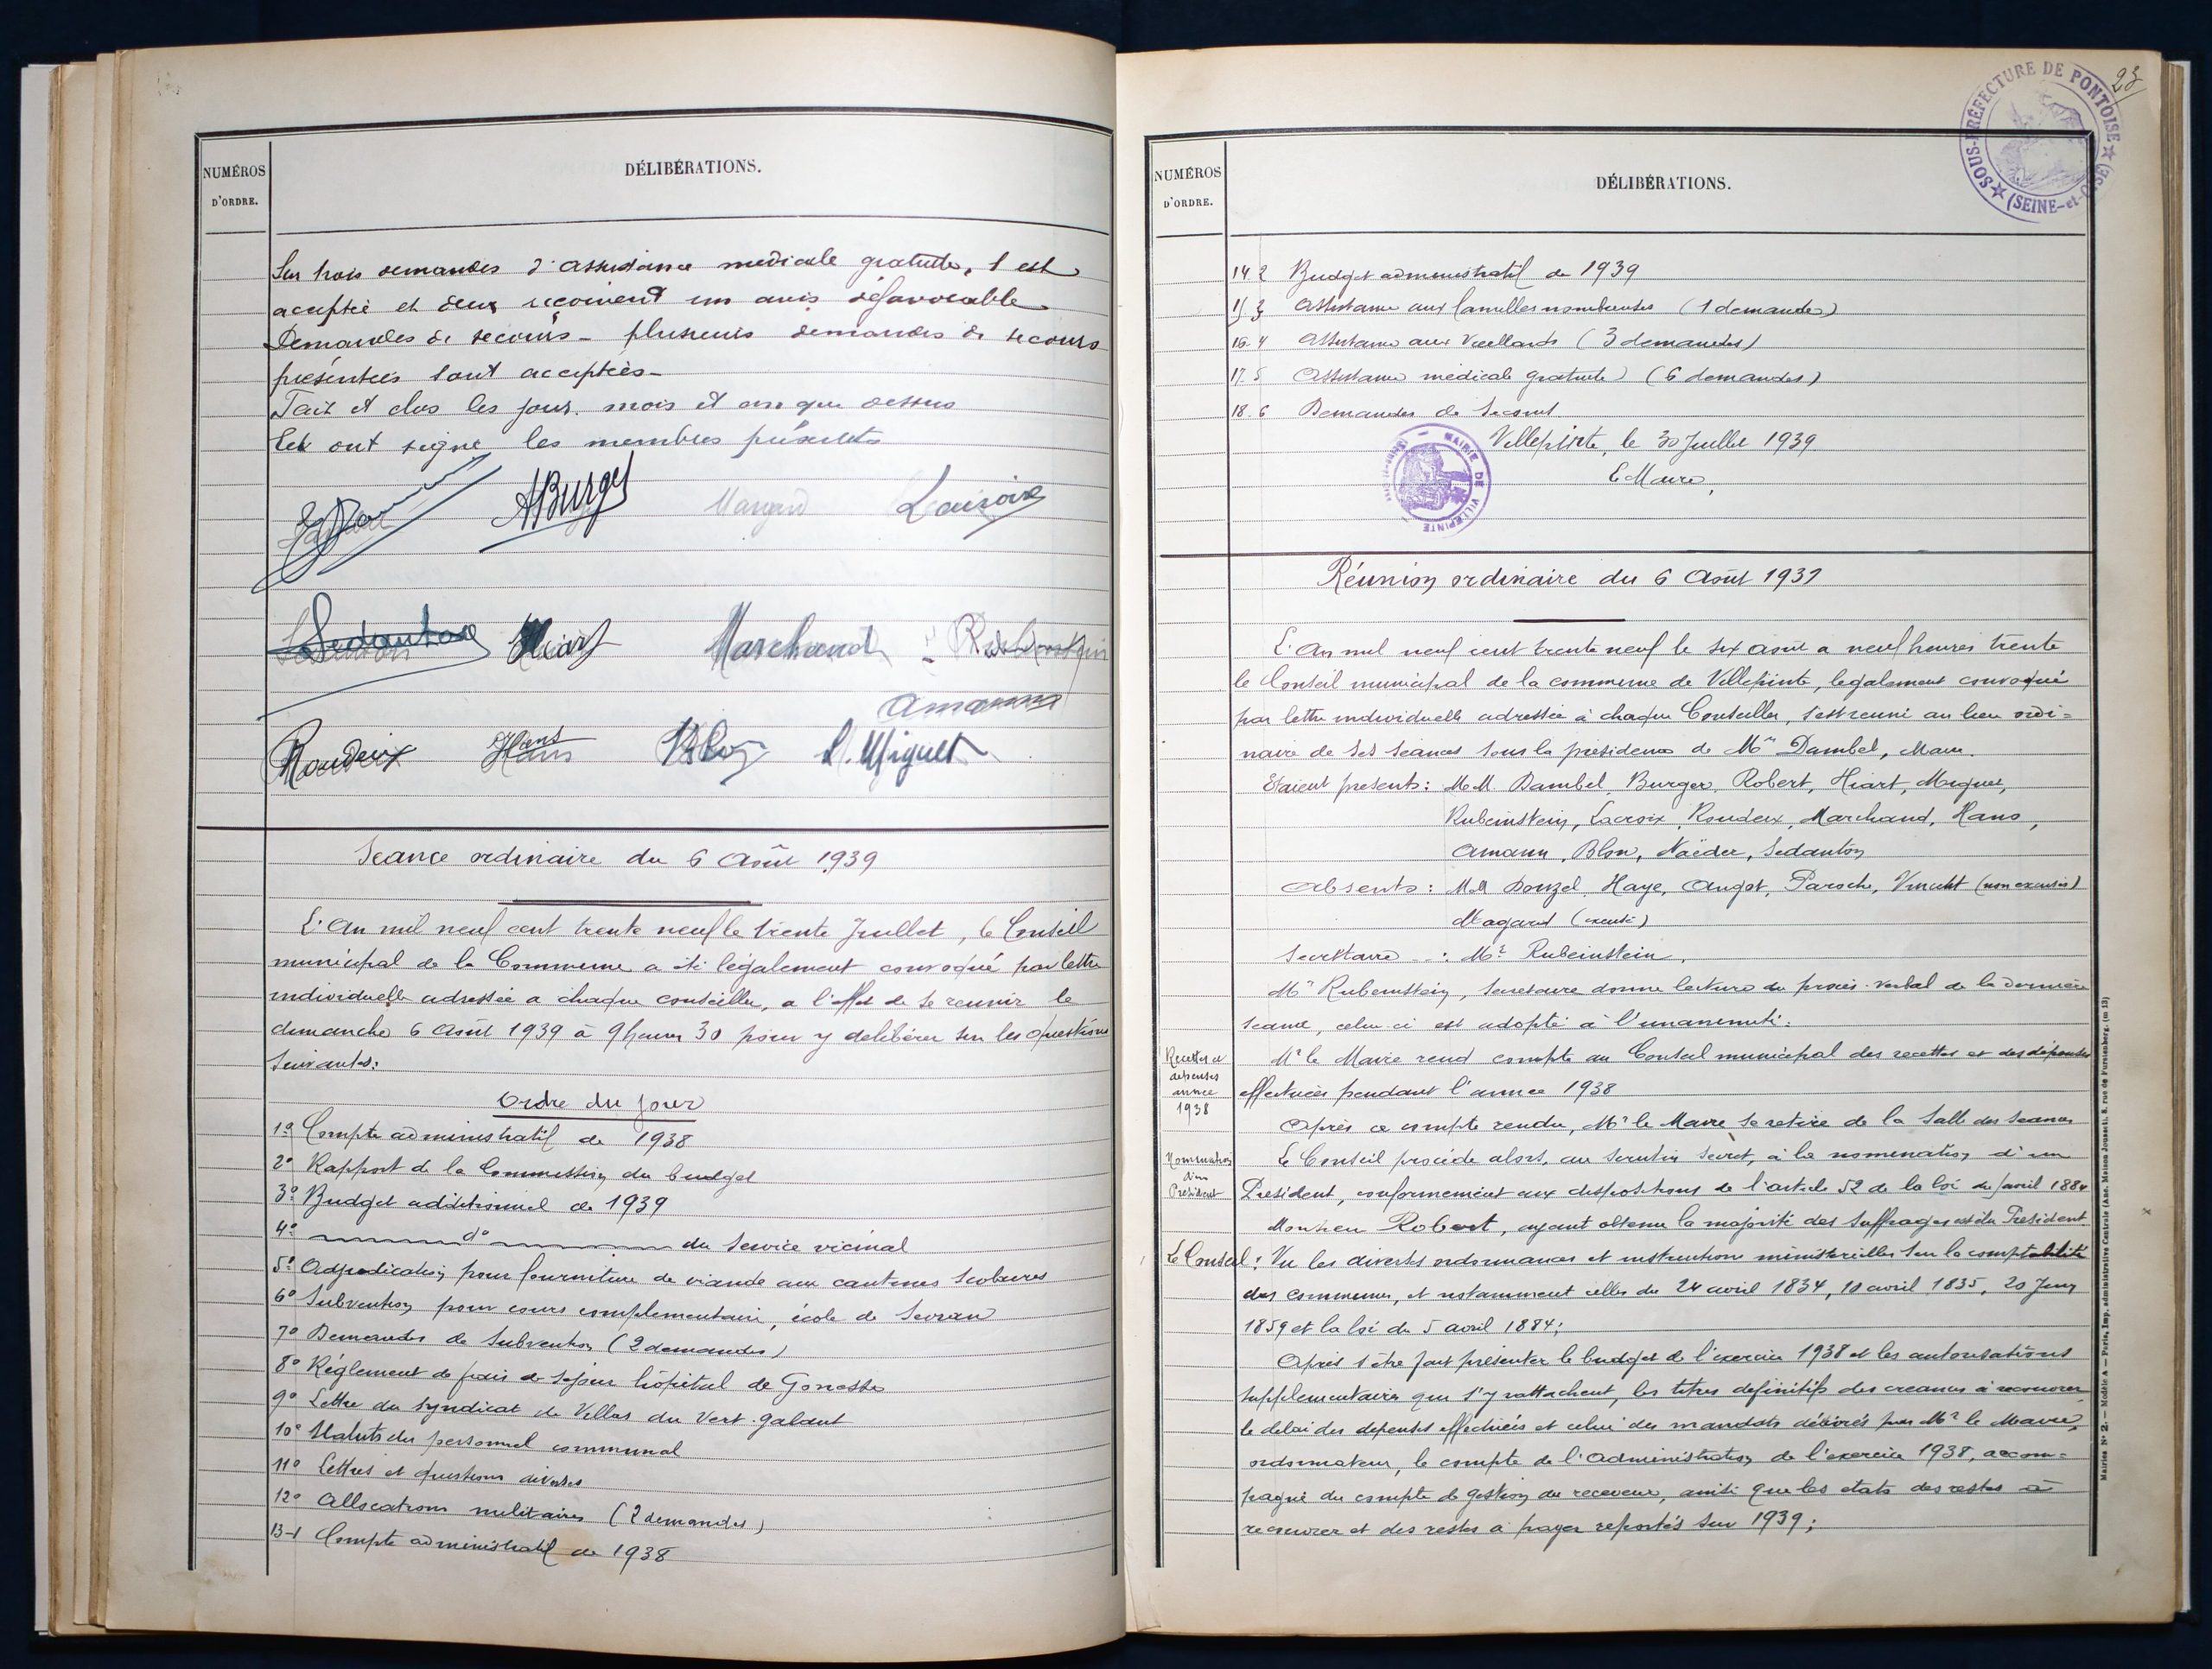 NUMÉROS
D'ORDRE.
DÉLIBÉRATIONS.
Sur trois demandes d'assistance medicale gratuite, 1 est
acceptée et deux reçoivent un avis défavorable
Demandes de secours - plusieurs demandes de secours
présentées sont acceptées -
Fait et clos les jour, mois et an que dessus
Et ont signé les membres présents
ABurger
Magard
Lacroix
Sedanton
Hiart
Marchand
Rubeinstein
Amann
Roudeix
Hans
Blon
R. Miguet
Seance ordinaire du 6 Août 1939
L'An mil neuf cent trente neuf le trente Juillet, le Conseil
municipal de la Commune a été légalement convoqué par lettre
individuelle adressée a chaque conseiller, a l'effet de se reunir le
dimanche 6 Août 1939 à 9 heures 30 pour y deliberer sur les questions
suivantes:
Ordre du jour
1º Compte administratif de 1938
2º Rapport de la Commission du budget
3º Budget additionnel de 1939
4º dº du Service vicinal
5º Adjudication pour fourniture de viande aux cantines scolaires
6º Subvention pour cours complementaire, école de Sevran
7º Demandes de Subvention (2 demandes)
8º Réglement de frais de sejour hôpital de Gonesse
9º Lettre du Syndicat de Villas du Vert-Galant
10º Statuts du personnel communal
11º Lettres et questions diverses
12º Allocations militaires (2 demandes)
13-1 Compte administratif de 1938
23
SOUS-PRÉFECTURE DE PONTOISE
(SEINE-et-OISE)
NUMÉROS
D'ORDRE.
DÉLIBÉRATIONS.
14 2 Budget administratif de 1939
15 3 Assistance aux familles nombreuses (1 demande)
16-4 Assistance aux Vieillards (3 demandes)
17-5 Assistance médicale gratuite (6 demandes)
18-6 Demandes de Secours
Villepinte, le 30 Juillet 1939
Le Maire,
MAIRIE DE VILLEPINTE
Réunion ordinaire du 6 Août 1939
L'An mil neuf cent trente neuf le six août a neuf heures trente
le Conseil municipal de la commune de Villepinte, legalement convoqué
par lettre individuelle adressée à chaque Conseiller, s'est reuni au lieu ordi=
naire de ses séances sous la présidence de Mr Dambel, Maire.
Etaient presents: M.M. Dambel, Burger, Robert, Hiart, Miguet,
Rubeinstein, Lacroix, Roudeix, Marchand, Hans,
Amann, Blon, Naëder, Sedanton
Absents: MM Donzel, Haye, Angot, Paroche, Vincent (non excusés)
Magard (excusé)
Secrétaire : Mr Rubeinstein.
Mr Rubeinstein, Secretaire donne lecture du procès-verbal de la dernière
séance, celui-ci est adopté à l'unanimité.
Recettes et
depenses
année
1938
Mr le Maire rend compte au Conseil municipal des recettes et des dépenses
effectuées pendant l'annee 1938
Après ce compte rendu, Mr le Maire se retire de la Salle des Seances
Nomination
d'un
President
Le Conseil procède alors, au scrutin secret, à la nomination d'un
President, conformement aux dispositions de l'article 52 de la loi du 5 avril 1884
Monsieur Robert, ayant obtenu la majorité des suffrages est élu President
Le Conseil: Vu les diverses ordonnances et instructions ministerielles sur la comptabilité
des communes, et notamment celles du 24 avril 1834, 10 avril 1835, 20 Juin
1859 et la loi du 5 avril 1884;
Après s'être fait présenter le budget de l'exercice 1938 et les autorisations
supplementaires qui s'y rattachent, les titres definitifs des creances à recouvrer
le delai des depenses effectuées et celui des mandats délivrés par Mr le Maire,
ordonnateur, le compte de l'Administration de l'exercice 1938, accom=
pagné du compte de gestion du receveur, ainsi que les etats des restes à
recouvrer et des restes a payer reportés sur 1939;
Mairies Nº 2. — Modèle A — Paris, Imp. administrative Centrale (Anc. Maison Jousset), 8, rue de Furstenberg. (m 13)